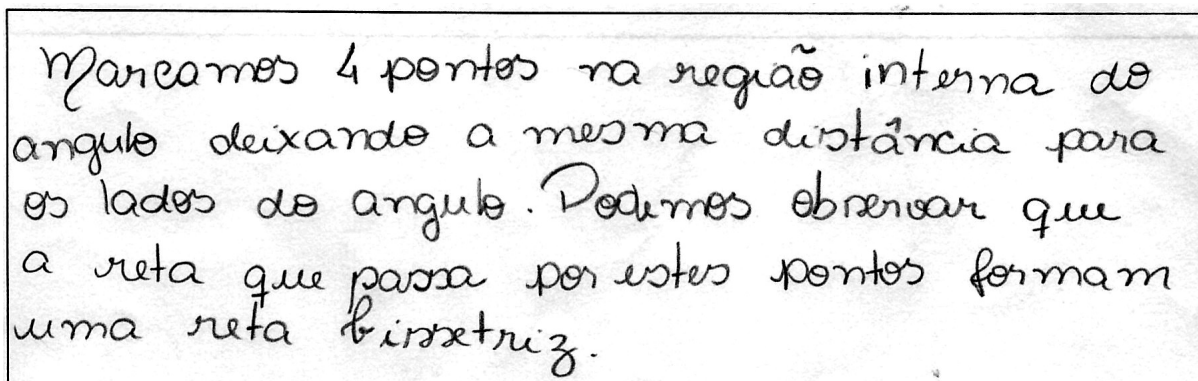 Marcamos 4 pontos na região interna do
angulo deixando a mesma distância para
os lados do angulo. Podemos observar que
a reta que passa por estes pontos formam
uma reta bissetriz.